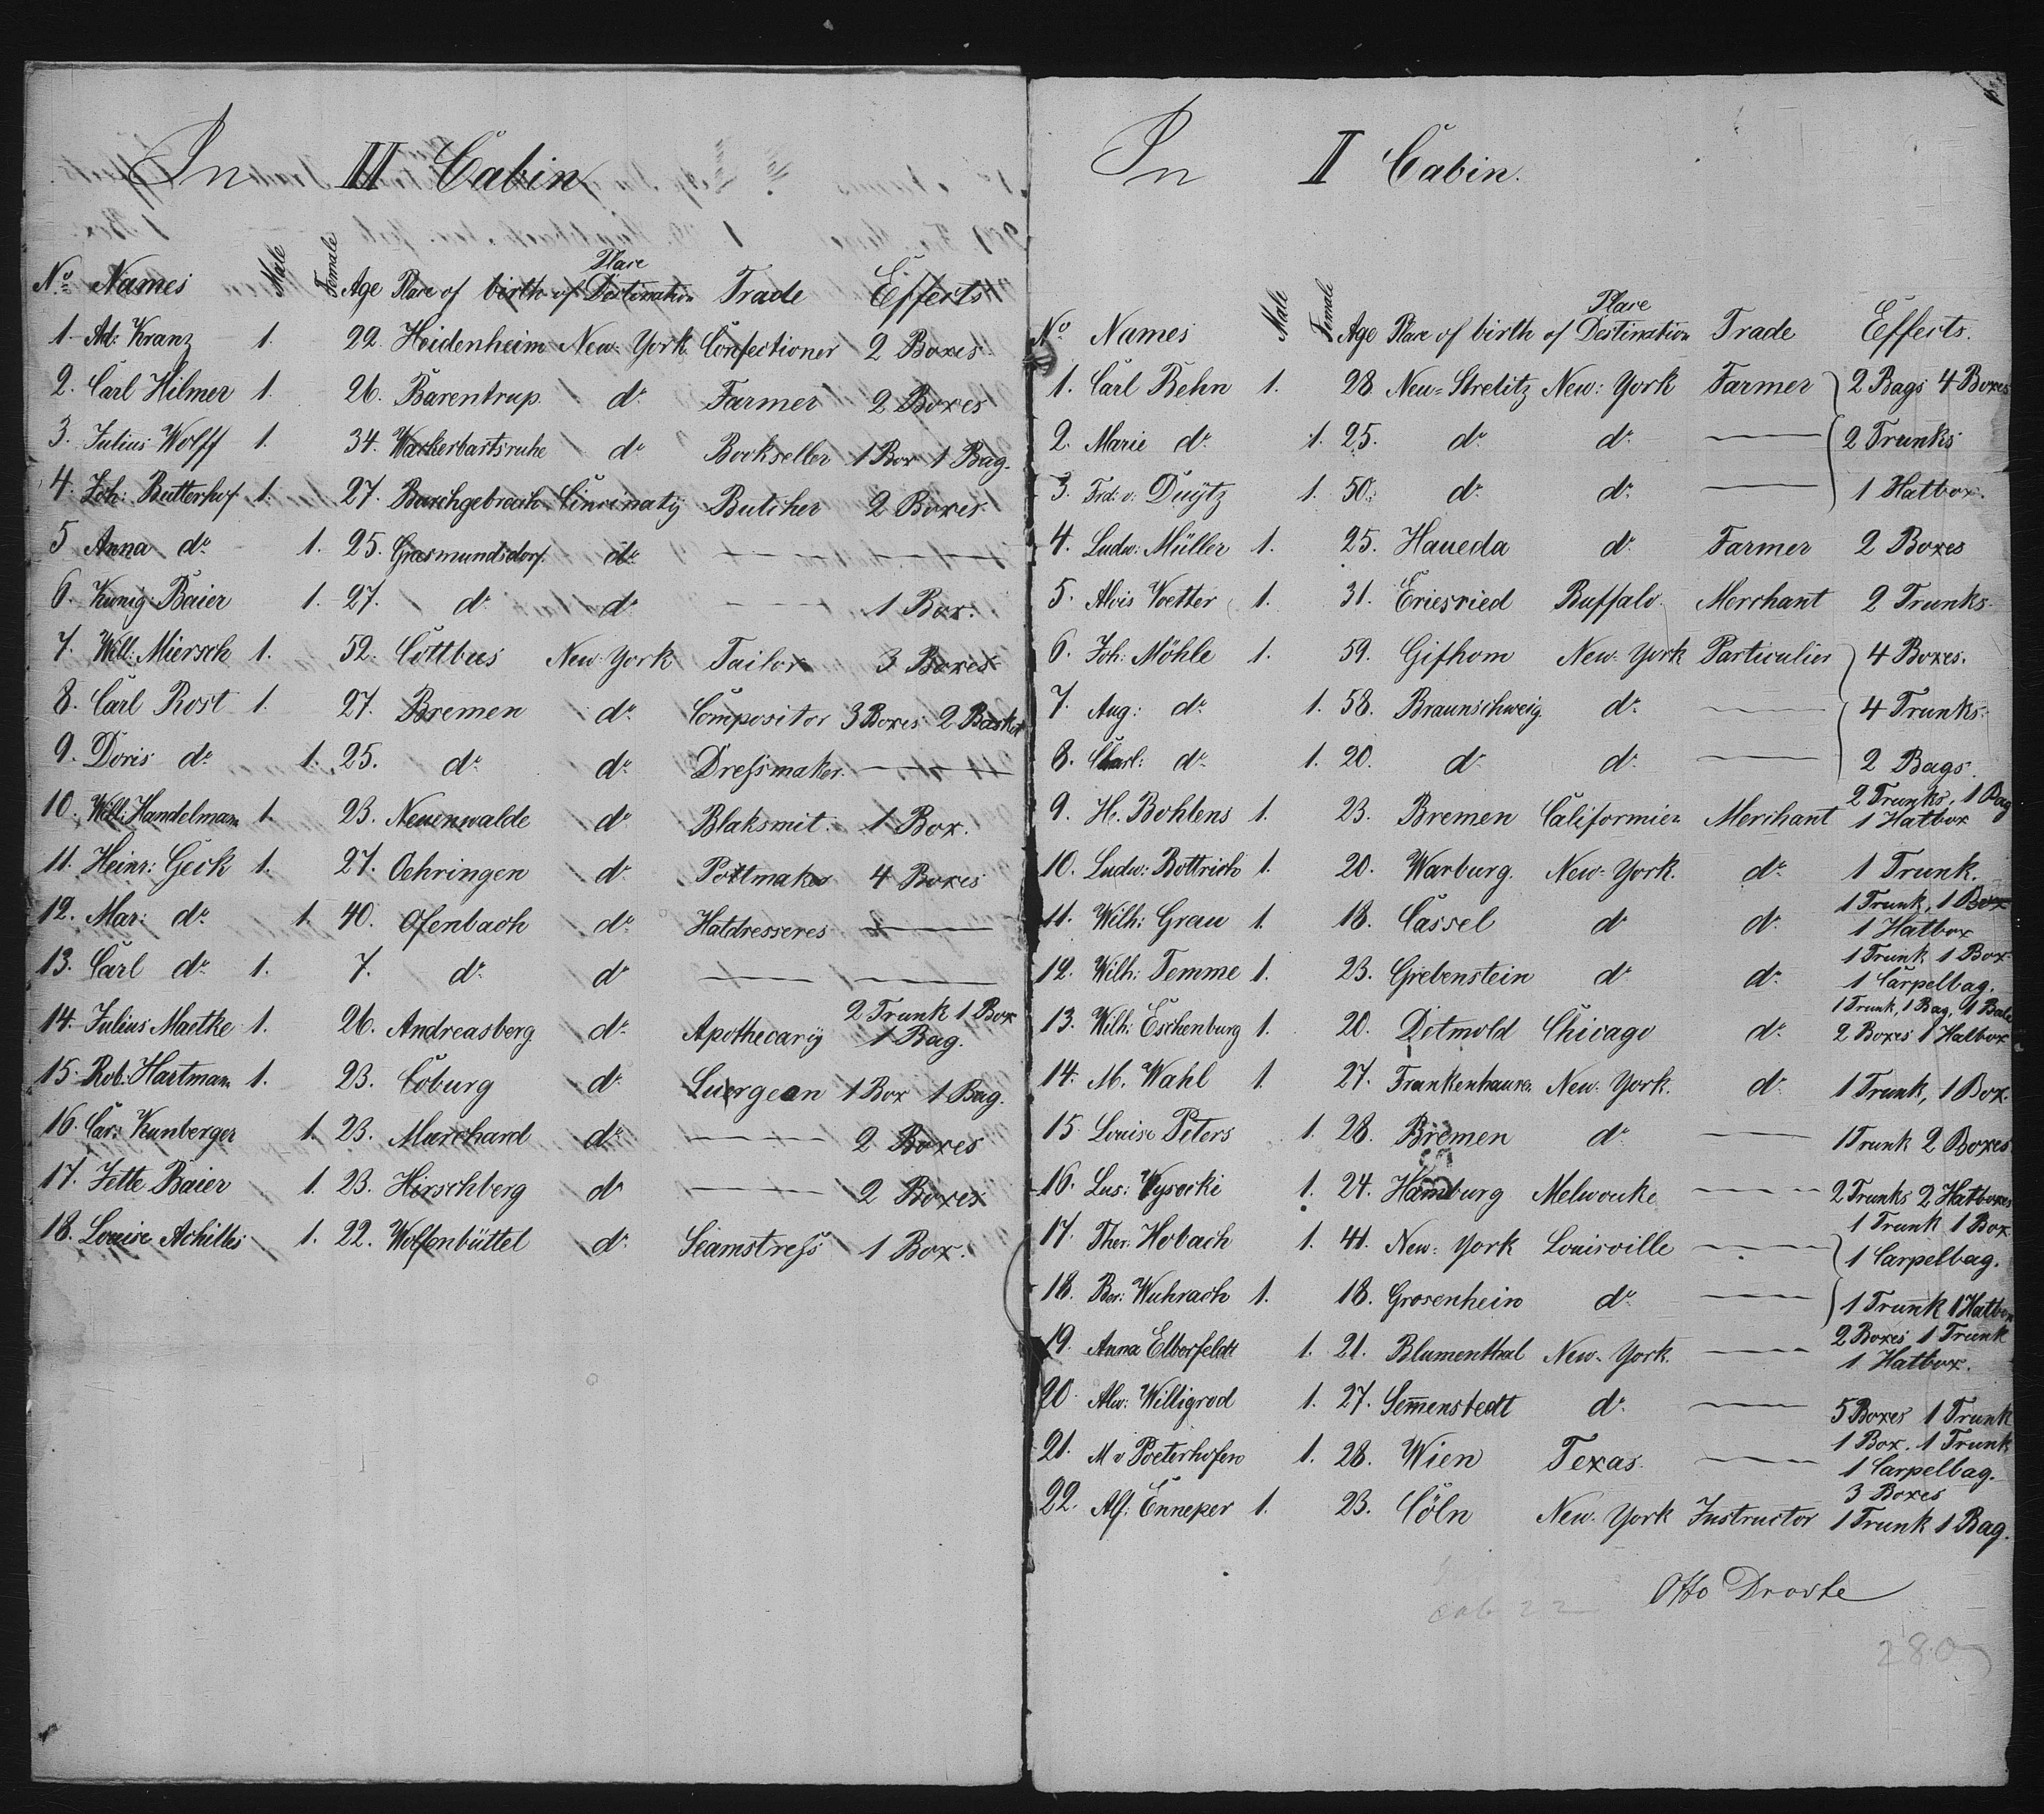 In II Cabin
No. Names Male Female Age Place of birth Place of Destination Trade Effects
1. Ad: Kranz 1. 22. Heidenheim New York Confectioner 2 Boxes
2. Carl Hilmer 1. 26. Barentrup do. Farmer 2 Boxes
3. Julius Wolff 1. 34. Wackerbartsruhe do. Bookseller 1 Box 1 Bag.
4. Joh: Butterhof 1. 27. Burchgebrach Cincinatij Butcher 2 Boxes
5 Anna do. 1. 25. Gresmundsdorf. do. — —
6. Kunig: Baier 1. 27. do. do. — 1 Box.
7. Will: Miersch 1. 52. Cottbus New York Tailor 3 Boxes
8. Carl Rost 1. 27. Bremen do. Compositor 3 Boxes 2 Basket
9. Doris do. 1. 25. do. do. Dressmaker. —
10. Will: Handelmann 1. 23. Neuenwalde do. Blaksmit. 1 Box.
11. Heinr: Geck 1. 27. Oehringen do. Pottmaker 4 Boxes
12. Mar: do. 1. 40. Ofenbach do. Hatdresseres —
13. Carl do. 1. 7. do. do. — —
14. Julius Maetke 1. 26. Andreasberg do. Apothecarij 2 Trunk 1 Box
1 Bag.
15. Rob: Hartmann 1. 23. Coburg do. Suergean 1 Box 1 Bag.
16. Car: Kunberger 1. 23. Murchard do. — 2 Boxes
17. Jette Baier 1. 23. Hirschberg do. — 2 Boxes
18. Louise Achilles 1. 22. Wolfenbüttel do. Seamstress 1 Box.
In I Cabin.
No. Names Male Female Age Place of birth Place of Destination Trade Effects.
1. Carl Behn 1. 28. Neu=Strelitz New: York Farmer 2 Bags 4 Boxes
2. Marie do. 1. 25. do. do. — 2 Trunks
3. Frd: v: Duÿtz 1. 50. do. do. — 1 Hatbox.
4. Ludw: Müller 1. 25. Haueda do. Farmer 2 Boxes
5. Alois Voetter 1. 31. Eriesried Buffalo. Merchant 2 Trunks.
6. Joh: Möhle 1. 59. Gifhom New York Particulier 4 Boxes.
7. Aug: do. 1. 58. Braunschweig do. — 4 Trunks.
8. Charl: do. 1. 20. do. do. — 2 Bags.
9. He. Bohlens 1. 23. Bremen Californien Merchant 2 Trunks, 1 Bag
1 Hatbox
10. Ludw: Bottrich 1. 20. Warburg. New=York. do. 1 Trunk.
11. Wilh: Grau 1. 18. Cassel do do. 1 Trunk, 1 Box
1 Hatbox
12. Wilh: Temme 1. 23. Grebenstein do. do. 1 Trunk 1 Box
1 Carpelbag.
13. Wilh: Eschenburg 1. 20. Detmold Chicago do. 1 Trunk, 1 Bag, 1 Bale
2 Boxes 1 Hatbox
14. M. Wahl 1. 27. Frankenhausen New: York. do. 1 Trunk, 1 Box.
15. Louise Peters 1. 28. Bremen do. — 1 Trunk 2 Boxes
16. Lus: Vysecki 1. 24. Hamburg Melwouke — 2 Trunks 2 Hatboxes
17. Ther: Hobach 1. 41. New: York Louisville — 1 Trunk 1 Box
1 Carpelbag.
18. Ber: Wuhrach 1. 18. Grosenhein do. — 1 Trunk 1 Hatbox
19. Anna Elberfeldt 1. 21. Blumenthal New-York. — 2 Boxes 1 Trunk
1 Hatbox.
20 Alw: Willigrod 1. 27. Sem̄enstedt do. — 5 Boxes 1 Trunk
21. M v Poeterhofen 1. 28. Wien Texas. — 1 Box. 1 Trunk
1 Carpelbag.
22. Alf: Enneper 1. 23. Cöln New-York Instructor 3 Boxes
1 Trunk 1 Bag.
Otto Droste
cab 22
280